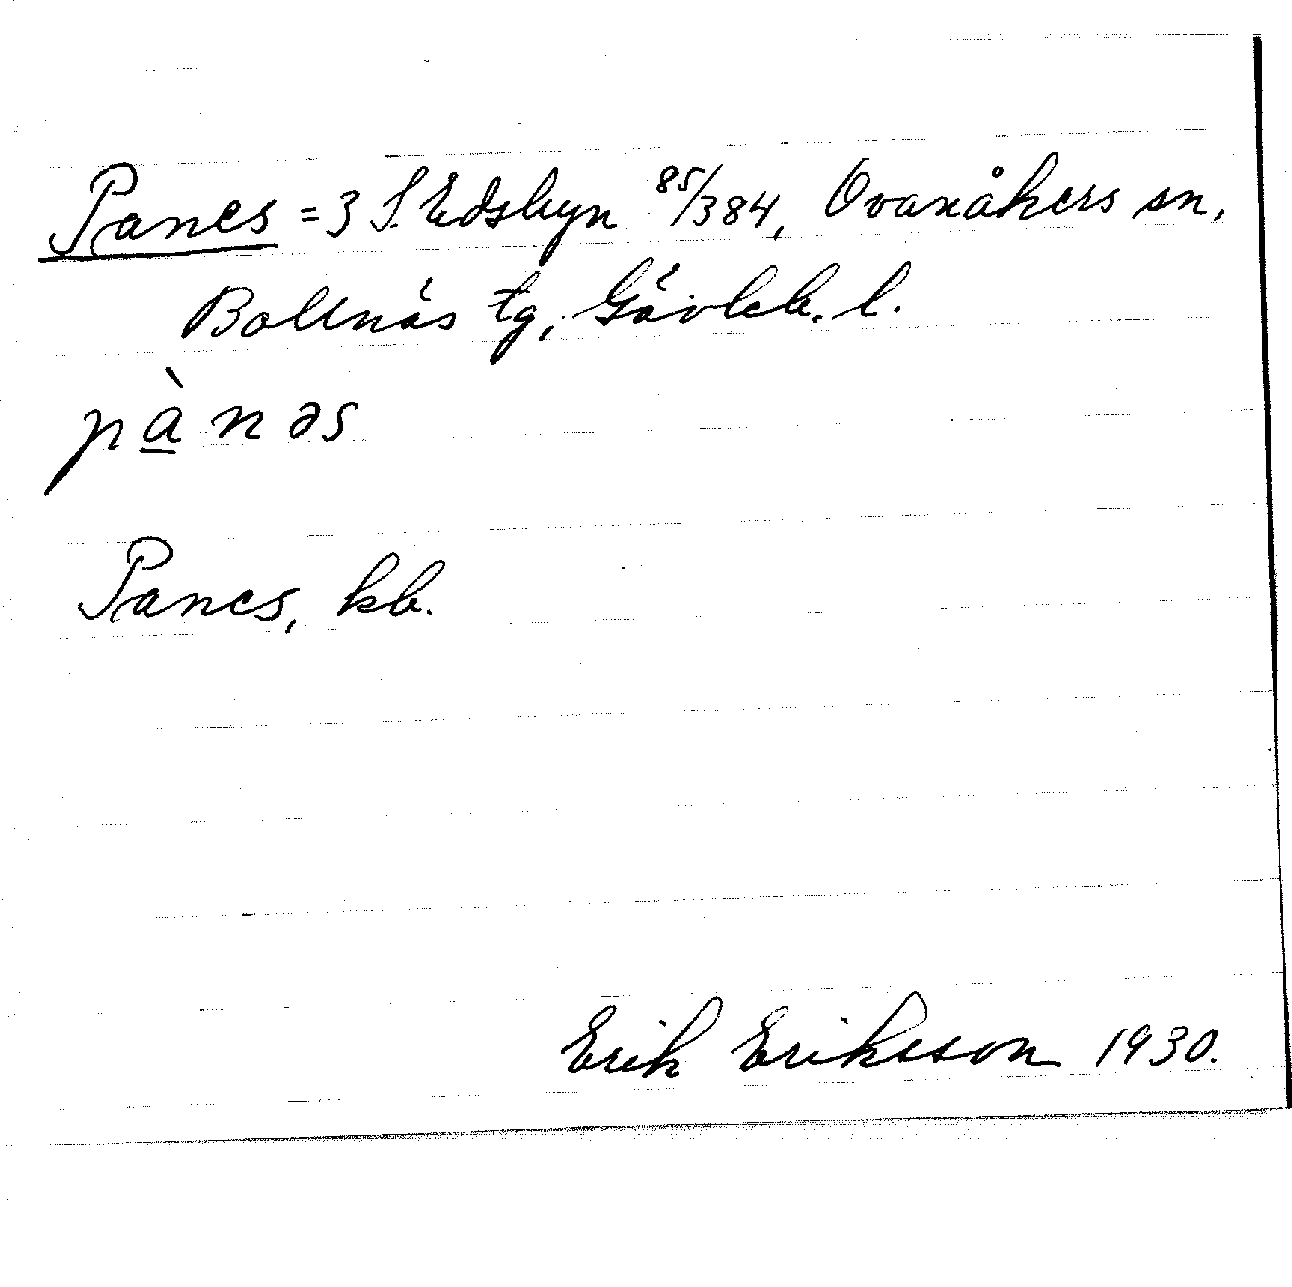 Panes = 3 S. Edsbyn 85/384, Ovanåkers sn,
Bollnäs tg, Gävleb. l.
pànəs
Panes, kb.
Erik Eriksson 1930.